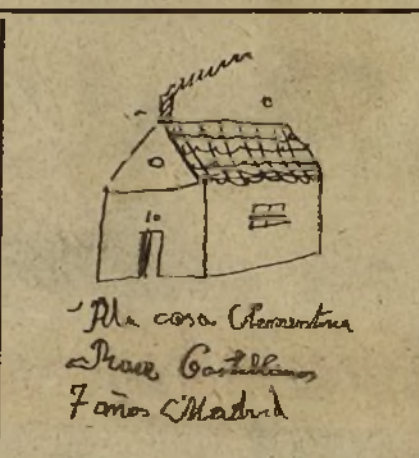 10
casa Clementina
Castellanos
7 años Madrid